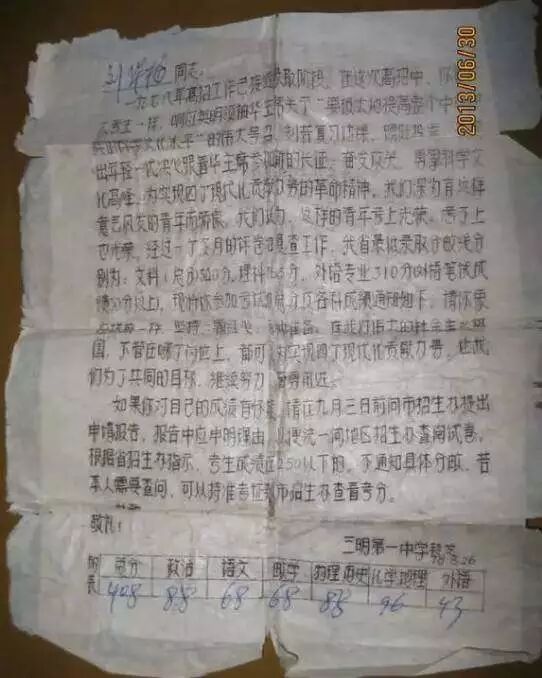 同志:
一九七八年高招工作已 取阶段。在这次高招中，你
人民 一样，响应英明领袖华主席关于“ 极大地提高整个中
科学文化水平”的伟大号召，刻苦复习功课，踊跃报
出年轻一代决心跟着华主席 新的长征，奋发 ，勇攀科学文
化高峰，为实现四个现代化贡献力 的革命精神，我们深为有这样
意气风发的青年而 。我们认为，这样的青年考上光荣，考不上
也光荣。经过一个多月的评卷和复查工作，我省最低录取分数线分
别为：文科(总分)300分，理科 分，外语专业310分(外语笔试成
绩50分以上)，现将你参加考试的总分及各科成绩通知如下，请你
一样，坚持一颗红心， 准备，在我们伟大的社会主义祖
国，不管在哪个岗位上，都可 为实现四个现代化贡献力量，让我
们为了共同的目标，继续努力，奋勇前进。
如果你对自己的成绩有怀疑，请在九月三日前向市招生办提出
申请报告，报告中应申明理由，以便统一向地区招生办查阅试卷。
根据省招生办指示，考生成绩在250以下的，不通知具体分数，若
本人需要查问，可以持准考证 市招生办查看考分。
敬礼!
三明第一中学 78.8.26
总分 政治 语文 数学 物理历史 化学地理 外语
408 88 68 68 88 96 43
2013/06/30